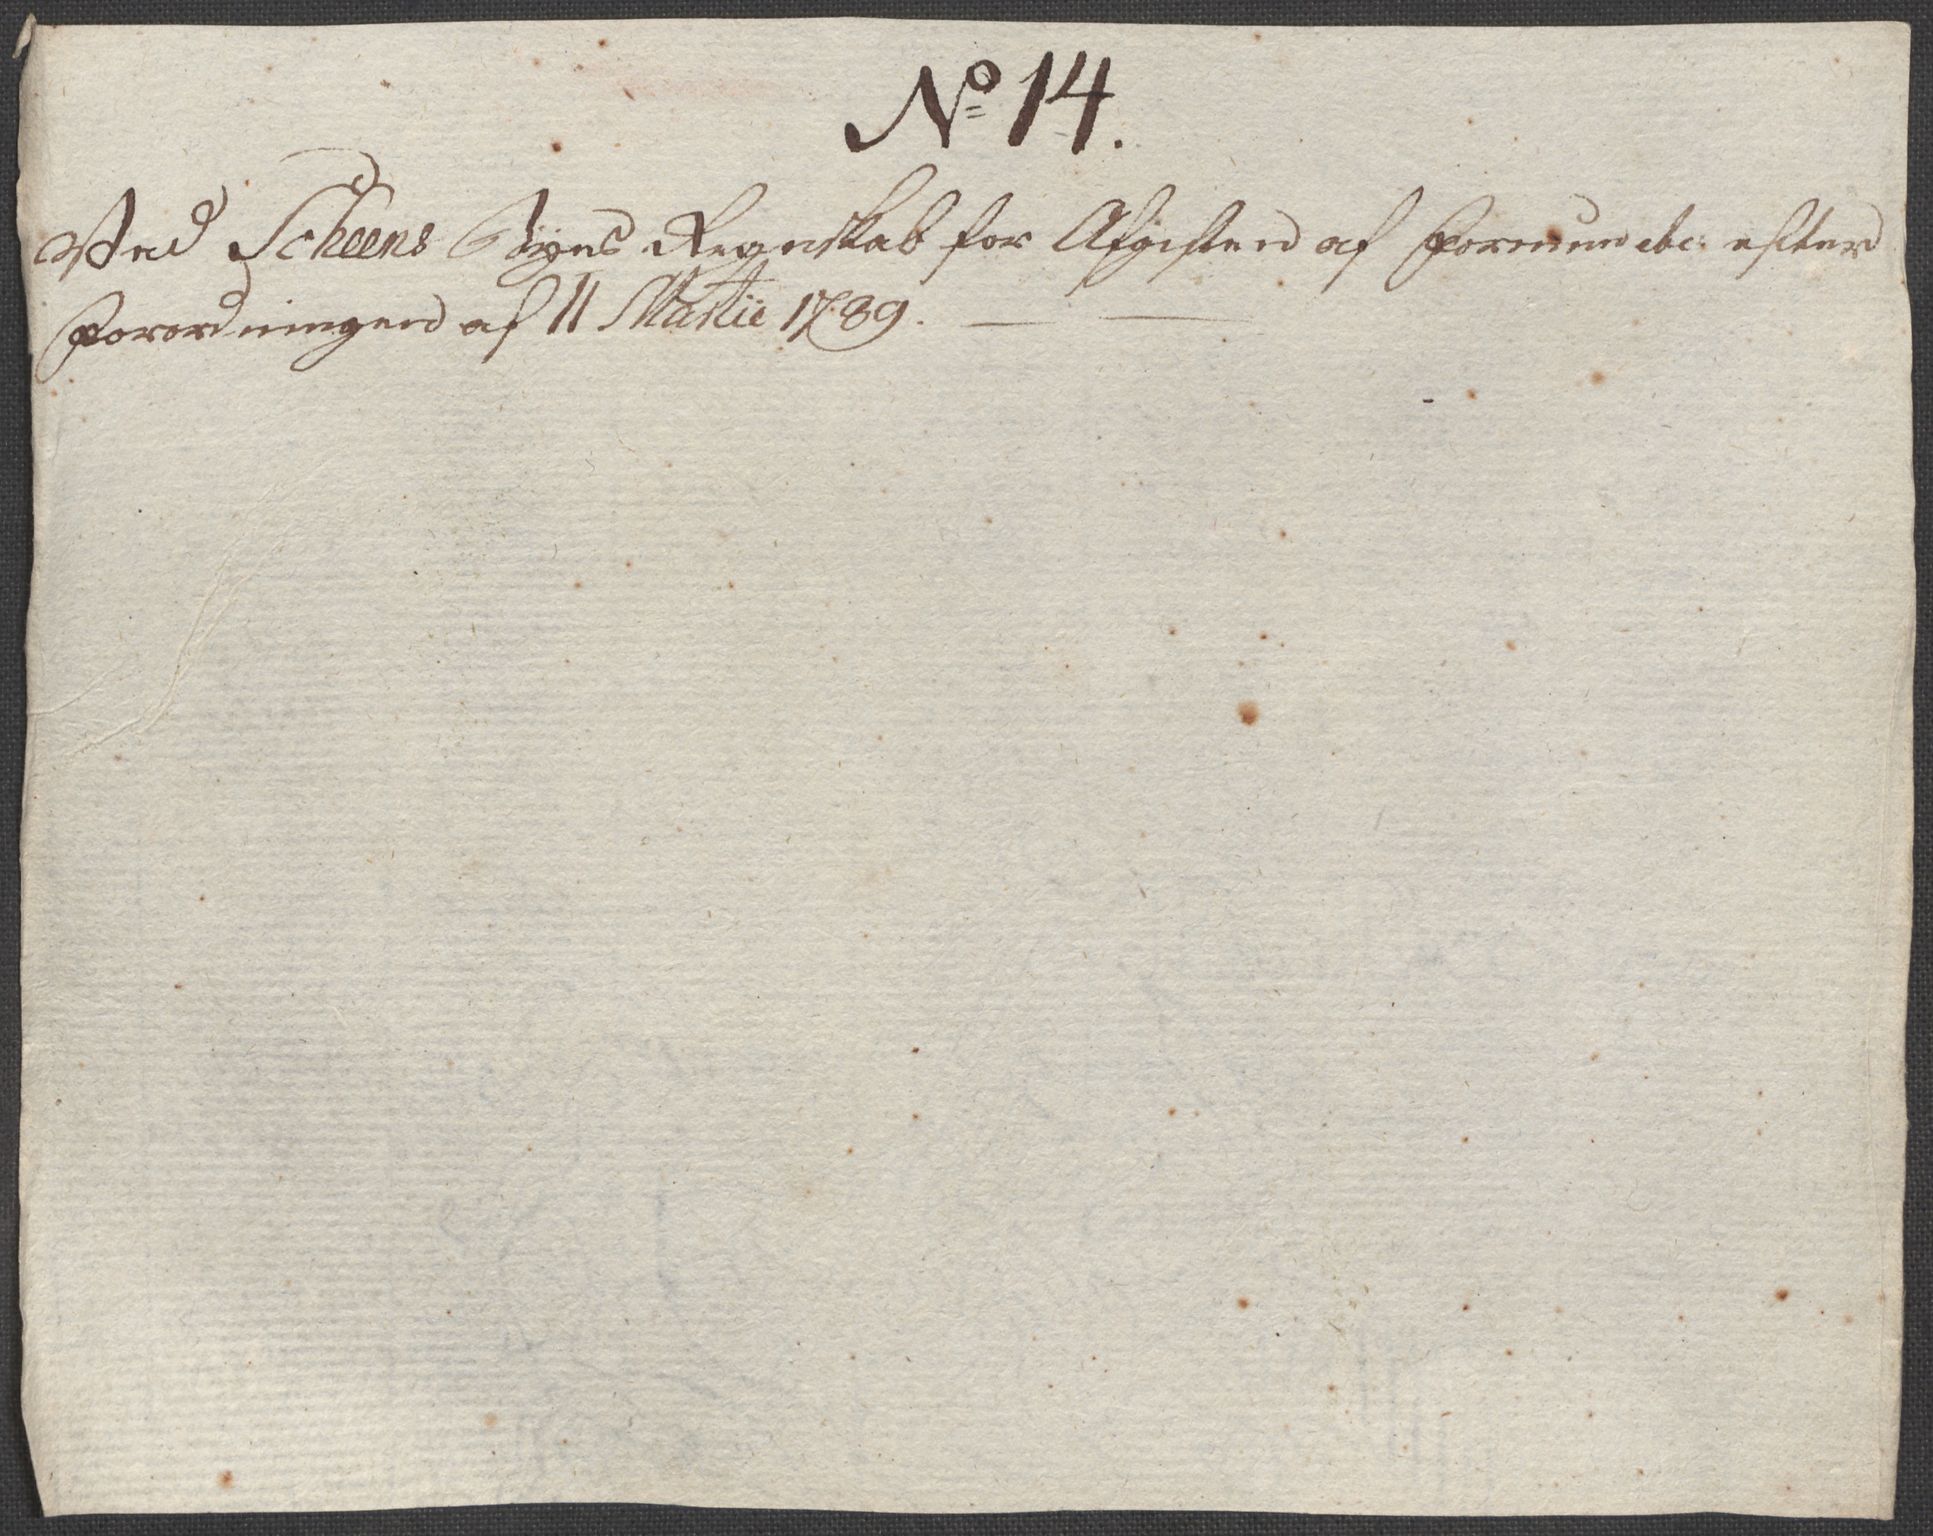 No 14.
Ved Scheens Byes Regnskab for Afgiften af Formue etc: efter
Forordningen af 11 Martii 1789.